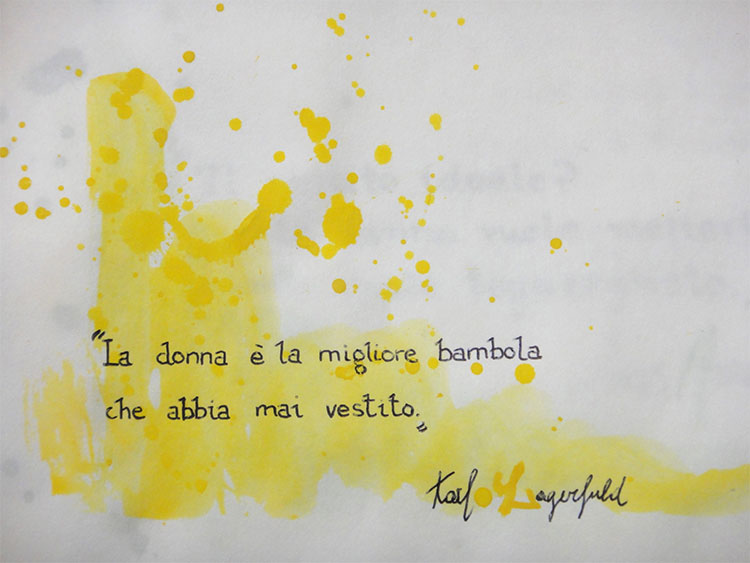 "La donna è la migliore bambola
che abbia mai vestito."
Karl Lagerfeld